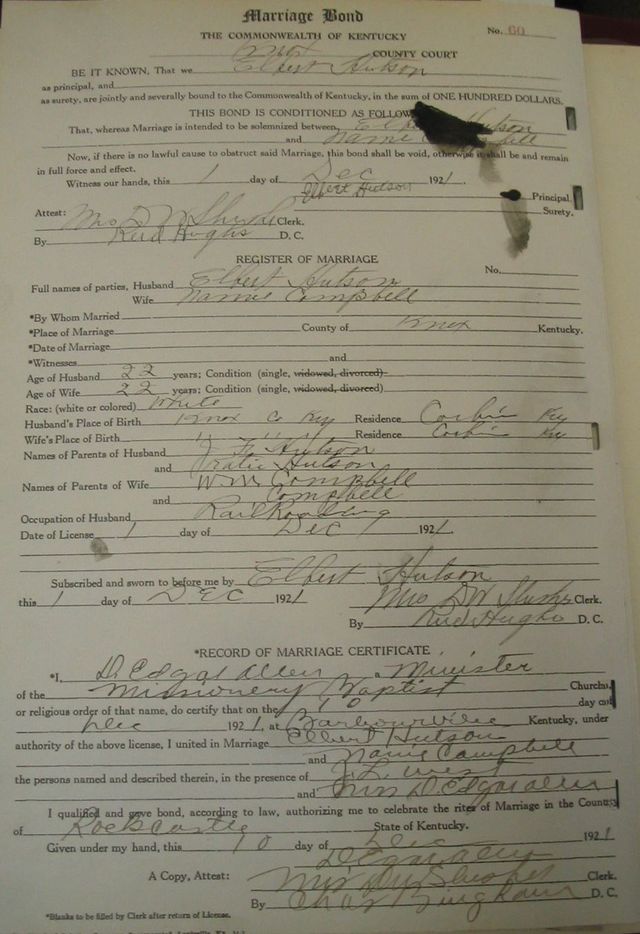 Marriage Bond
THE COMMONWEALTH OF KENTUCKY
No. 60
Knox COUNTY COURT
BE IT KNOWN, That we Elbert Hutson
as principal, and
as surety, are jointly and severally bound to the Commonwealth of Kentucky, in the sum of ONE HUNDRED DOLLARS.
THIS BOND IS CONDITIONED AS FOLLOW
That, whereas Marriage is intended to be solemnized between Elbert Hutson
and Nannie
Now, if there is no lawful cause to obstruct said Marriage, this bond shall be void, otherwise it shall be and remain
in full force and effect.
Witness our hands, this 1 day of Dec 1921.
Elbert Hutson Principal.
Surety.
Attest:
Mrs D W Clerk.
By Reid Hughs D. C.
REGISTER OF MARRIAGE
No.
Full names of parties, Husband Elbert Hutson
Wife Nannie Campbell
*By Whom Married
*Place of Marriage County of Knox Kentucky.
*Date of Marriage
*Witnesses and
Age of Husband 22 years; Condition (single, widowed, divorced)
Age of Wife 22 years; Condition (single, widowed, divorced)
Race: (white or colored) White
Husband's Place of Birth Knox Co Ky Residence Corbin Ky
Wife's Place of Birth " " " Residence Corbin Ky
Names of Parents of Husband Hutson
and Hutson
Names of Parents of Wife Wm Campbell
and Campbell
Occupation of Husband RailRoading
Date of License 1 day of Dec 1921.
Subscribed and sworn to before me by Elbert Hutson
this 1 day of DEC 1921
Mrs D W Clerk.
By Reid Hughs D. C.
*RECORD OF MARRIAGE CERTIFICATE
*I, D. Edgar Allen, Minister
of the Missionery Baptist Church,
or religious order of that name, do certify that on the 10 day of
Dec 1921, at Barbourville Kentucky, under
authority of the above license, I united in Marriage Elbert Hutson
and Nannie Campbell
the persons named and described therein, in the presence of J. L. West
and Mrs D. Edgar Allen
I qualified and gave bond, according to law, authorizing me to celebrate the rites of Marriage in the County
of Rockcastle State of Kentucky.
Given under my hand, this 10 day of Dec 1921
D Edgar Allen
A Copy, Attest: Mrs D W Clerk.
By Chas Bingham D. C.
*Blanks to be filled by Clerk after return of License.